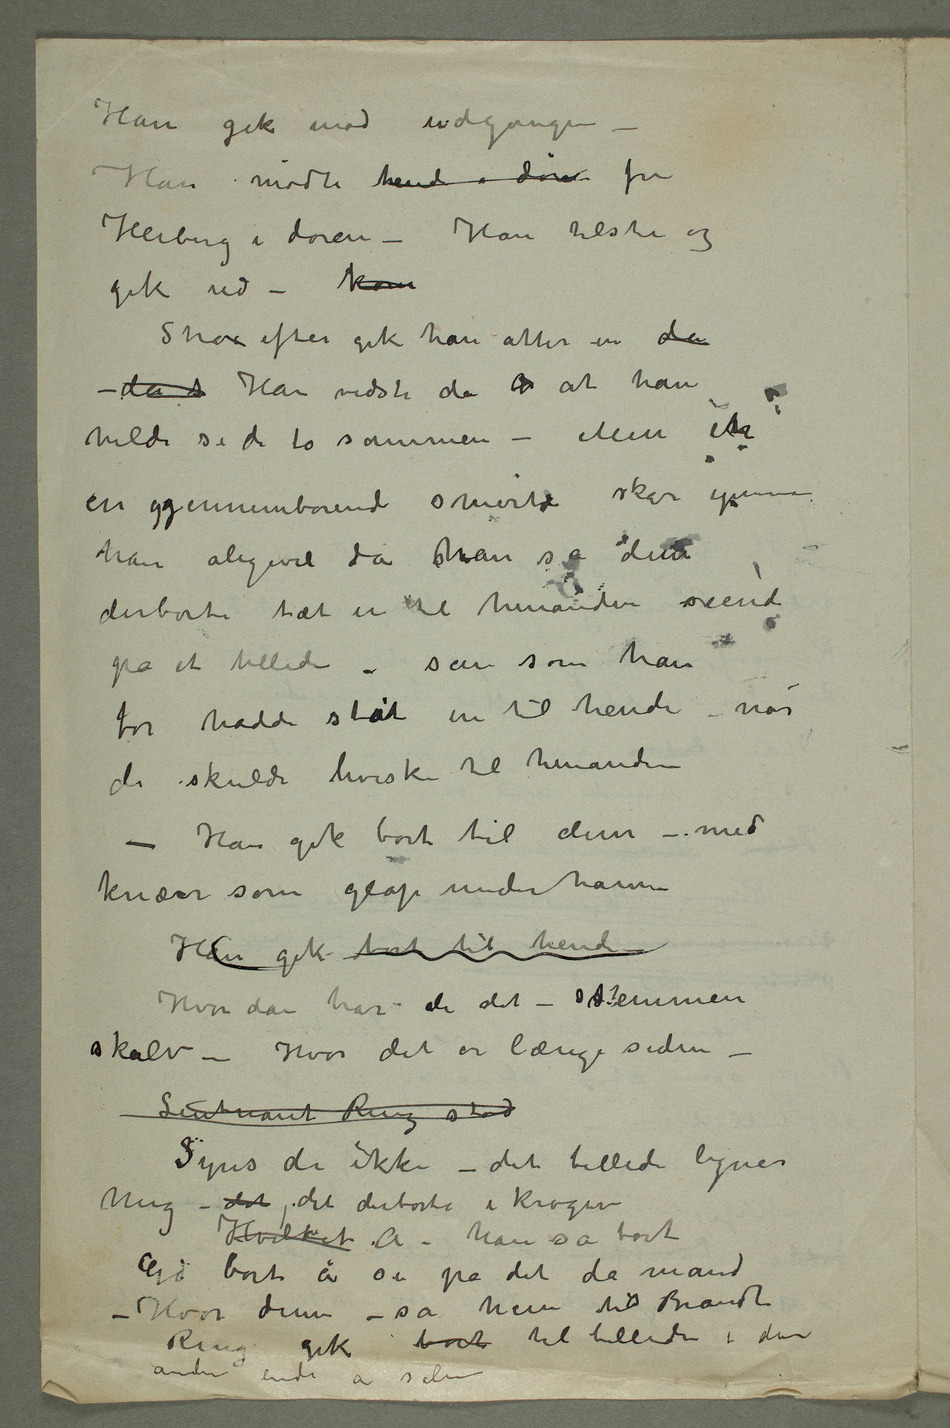 Han gik mod udgangen –
Han mødte hende i døren fru
Heiberg i døren – Han hilste og
gik ud – kom
Strax efter gik han atter in da
– da Han vidste da at han
vilde se de to sammen – Men
en gjennemborende smerte skar igjennem
han aligevel da han så dem
derborte tæt in til hinanden seende
på et billede – som som han
før hadde ståt in til hende – når
de skulde hviske til hinanden
– Han gik bort til dem – med
knæer som glap under hamm
Han gik bort til hende
Hvordan har de det – stemmen
skalv – Hvor det er længe siden –
Leutnant Ring stod
Syns de ikke – det billede ligner
mig – det, det derborte i krogen
Hvilket A – han så bort
Gå bort å se på det da mand
– Hvor denn – sa hun til Brandt
Ring gik bort til billedet i den
anden ende a salen